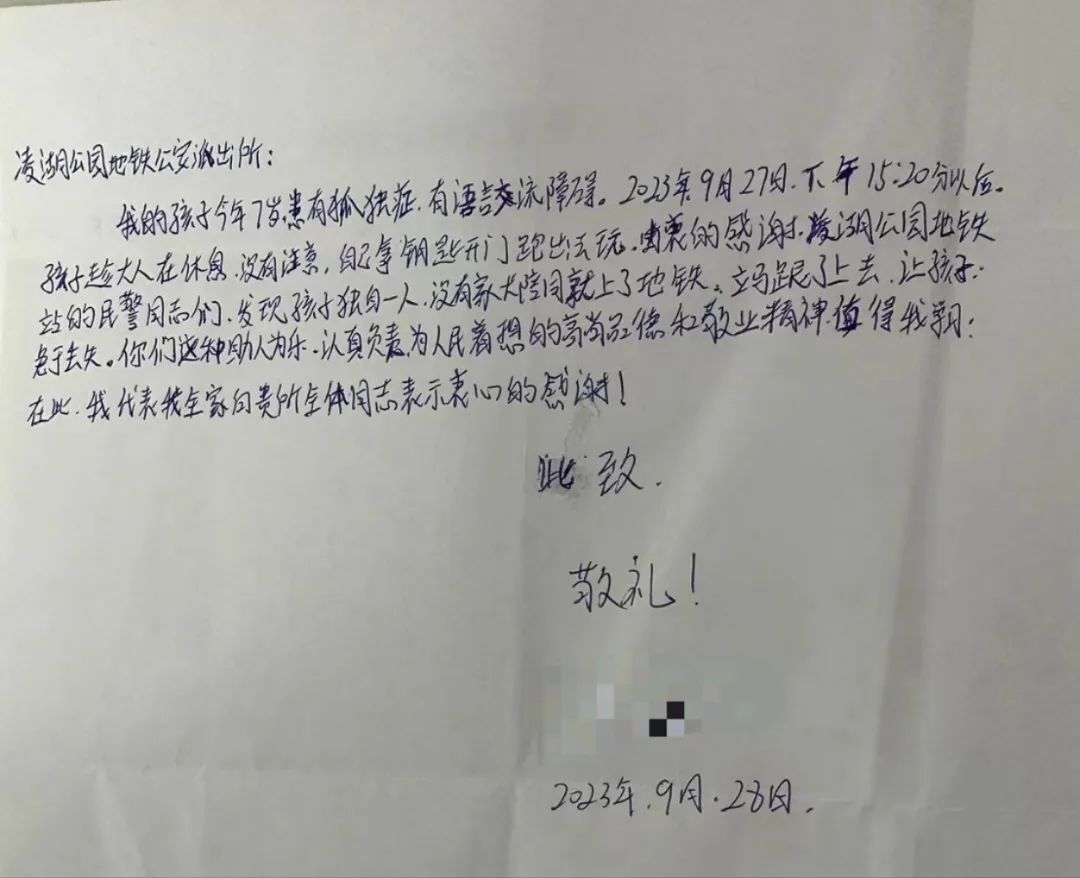 凌湖公园地铁公安派出所：
我的孩子今年7岁患有狐独症.有语言交流障碍。2023年9月27日.下午15:20分以后。
孩子趁大人在休息.没有注意，自己拿钥匙开门跑出去玩.由衷的感谢.凌湖公园地铁
站的民警同志们.发现孩子独自一人.没有家大陪同就上了地铁。立马跟了上去.让孩子.
免于丢失。你们这种助人为乐.认真负责.为人民着想的高尚品德和敬业精神.值得我学习：
在此.我代表我全家向贵所全体同志表示衷心的感谢！
此致.
敬礼！
2023年.9月.28日.